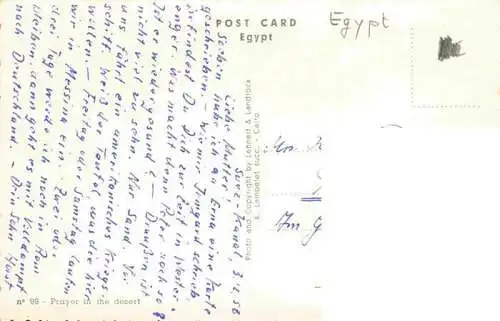 POST CARD
Egypt
Egypt
Suez-Kanal, 3.2.56
Liebe Mutter!
Soeben habe ich an Erna eine Karte
geschrieben. - Wie mir Irmgard schrieb
befindest Du Dich zur Zeit in
was macht denn Peter noch so?
Ist er wieder gesund? - Draußen ist
nicht viel zu sehn. Nur Sand. Vor
uns fährt ein amerikanisches Kriegs-
schiff. Weiß der Teufel, was die hier
wollen. - Freitag oder Samstag laufen
wir in Messina ein. Zwei oder
drei Tage werde ich noch in Rom
bleiben, dann geht es mit Volldampf
nach Deutschland. - Dein Sohn Horst
Photo and Copyright by Lehnert & Landrock
K. Lambelet succ. - Cairo
Am G
n° 99 - Prayer in the desert